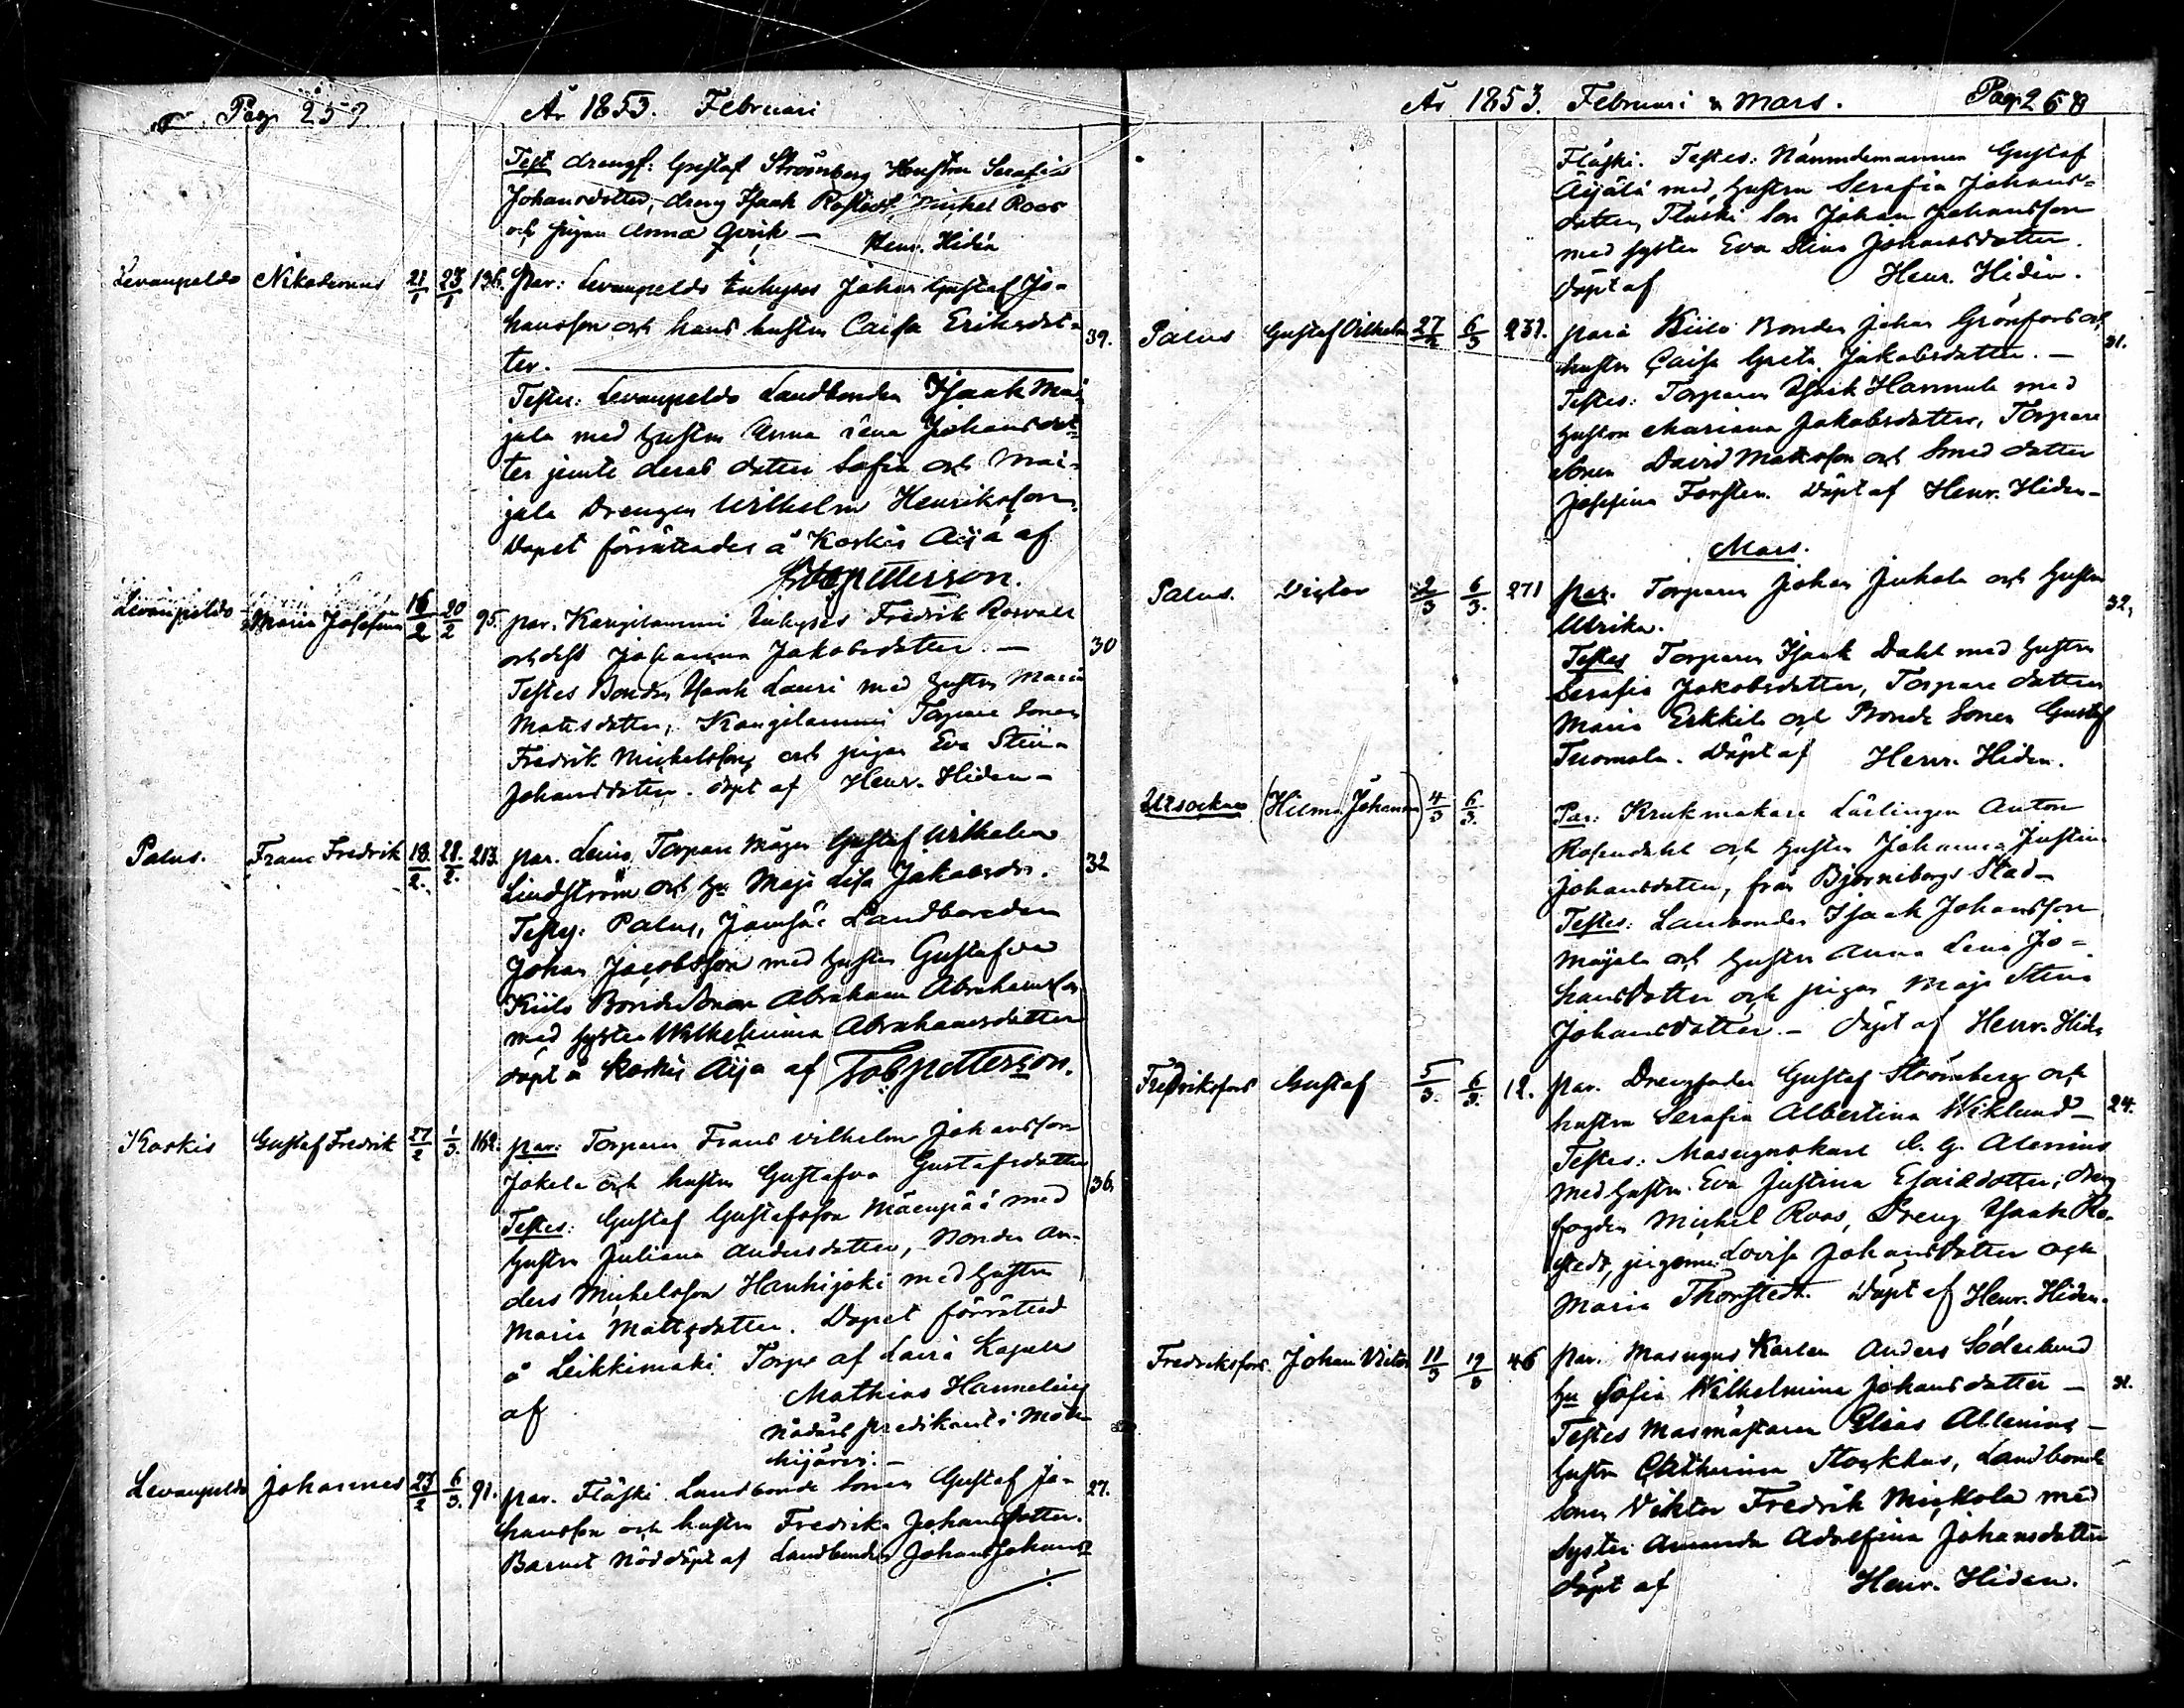 Pag. 259 År 1853. Februari
Test drengf: Gustaf Strömberg Hustru Serafia
Johansdotter, dreng Isaak Rostedt, Mickel Roos
och pigan Anna Qvick —
Henr. Hidén
Levanpeldo Nikodemus 21/1 23/1 136. Par: Levanpeldo Inhyses Johan Gustaf Jo-
hansson och hans hustru Caisa Eriksdot-
ter. 39.
Testes: Levanpeldo Landbonden Isaak Mai-
jala med hustru Anna Lena Johansdot-
ter jemte deras dotter Sofia och Mai-
jala Drengen Wilhelm Henriksson.
Dopet förrättades å Koskis Äijä af
Tob. Petterson.
Levanpeldo Maria Josefina 16/2 20/2 95. par. Kangilammi Inhyses Fredrik Rosvall
och dess Johanna Jakobsdotter — 30
Testes Bonden Isaak Lauri med hustru Maria
Matsdotter, Kangilammi Torpare Sonen
Fredrik Mickelsson och pigan Eva Stina
Johansdotter. döpt af Henr. Hiden —
Palus. Frans Fredrik 18/2. 28/2. 213. par. Leino Torpare Mågen Gustaf Wilhelm
Lindström och hu Maja Lisa Jakobsdr. 32
Testes: Palus, Jämsä Landbonden
Johan Jacobsson med hustru Gustafva
Kiilo Bondesonen Abraham Abrahamsson
med syster Wilhelmina Abrahamsdotter
döpt å Koskis Äijä af Tob. Petterson.
Koskis Gustaf Fredrik 27/2 1/3. 162. par: Torparen Frans Vilhelm Johansson
Jokela och hustru Gustafva Gustafsdotter 36.
Testes: Gustaf Gustafsson Mäenpää med
hustru Juliana Andersdotter, Bonden An-
ders Mickelsson Hanhijoki med hustru
Maria Mattsdotter. Dopet förrättad
å Leikkimäki Torp af Lavia Kapell
af Mathias Hannelius
Nödårs predikant i Mou-
hijärvi. —
Levanpeldo Johannes 23/2 6/3. 91. par. Fläski Landbonde Sonen Gustaf Jo- 27.
hansson och hustru Fredrika Johansdotter.
Barnet Nöddöpt af Landbonden Johan Johans
År 1853. Februari & Mars. Pag. 268
Fläski. Testes: Nämndemannen Gustaf
Äijälä med, hustru Serafia Johans-
dotter, Fläski Son Johan Johansson
med syster Eva Stina Johansdotter.
Döpt af Henr. Hiden.
Palus Gustaf Vilhelm 27/2 6/3 231. para Kiilo Bonden Johan Grönfors och 31.
hustru Caisa Greta Jakobsdotter. —
Testes: Torparen Isaak Hannula med
hustru Mariana Jakobsdotter, Torpare
Sonen David Matsson och Smed dotter
Josefina Forsten. Döpt af Henr. Hiden —
Mars.
Palus. Victor 2/3 6/3. 271 par. Torparen Johan Juhola och hustru 32.
Ulrika.
Testes Torparen Isaak Dahl med hustru
Serafia Jakobsdotter, Torpare dottern
Maria Erkkilä och Bonde Sonen Gustaf
Tuomola. Döpt af Henr. Hiden.
Utsocknes (Hilma Johanna) 4/3 6/3. Par: Krukmakare Lärlingen Anton
Rosendahl och hustru Johanna Justina
Johansdotter, från Björneborgs Stad —
Testes: Lanbonden Isaak Johansson
Maijala och hustru Anna Lena Jo-
hansdotter och pigan Maja Stina
Johansdotter. — döpt af Henr. Hiden
Fredriksfors Gustaf 5/3. 6/3. 12. par. Drengfoden Gustaf Strömberg och
hustru Serafia Albertina Wiklund — 24.
Testes: Masugnskarl C. G. Alenius
med hustru Eva Justina Esaidotter, dreng
fogden Mickel Roos, Dreng Isaak Ro-
stedt, pigorna Lovisa Johansdotter och
Maria Thorstedt. Döpt af Henr. Hiden.
Fredriksfors. Johan Victor 11/3 19/3 46 par. Masugns Karlen Anders Söderlund
hu Sofia Wilhelmina Johansdotter — 31.
Testes Masmästaren Elias Allenius —
hustru Catharina Stockhus, Landbonde
sonen Viktor Fredrik Mickola med
Syster Amanda Adolfina Johansdotter
döpt af Henr. Hiden.